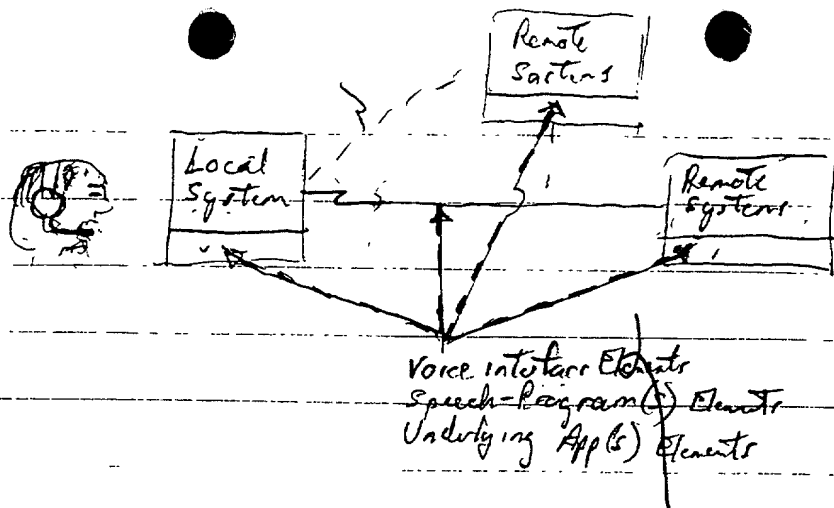 Remote
Systems
Local
System
Remote
Systems
Voice interface Elements
Speech-Program(s) Elements
Underlying App(s) Elements